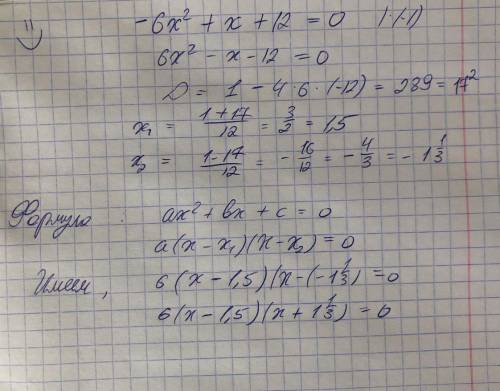 -6x² + x + 12 = 0 | · (-1)
6x² - x - 12 = 0
D = 1 - 4 · 6 · (-12) = 289 = 17²
x₁ = (1+17)/12 = 3/2 = 1,5
x₂ = (1-17)/12 = - 16/12 = - 4/3 = - 1 1/3
Формула : ax² + bx + c = 0
a(x - x₁)(x - x₂) = 0
Имеем, 6(x - 1,5)(x - (-1 1/3)) = 0
6(x - 1,5)(x + 1 1/3) = 0